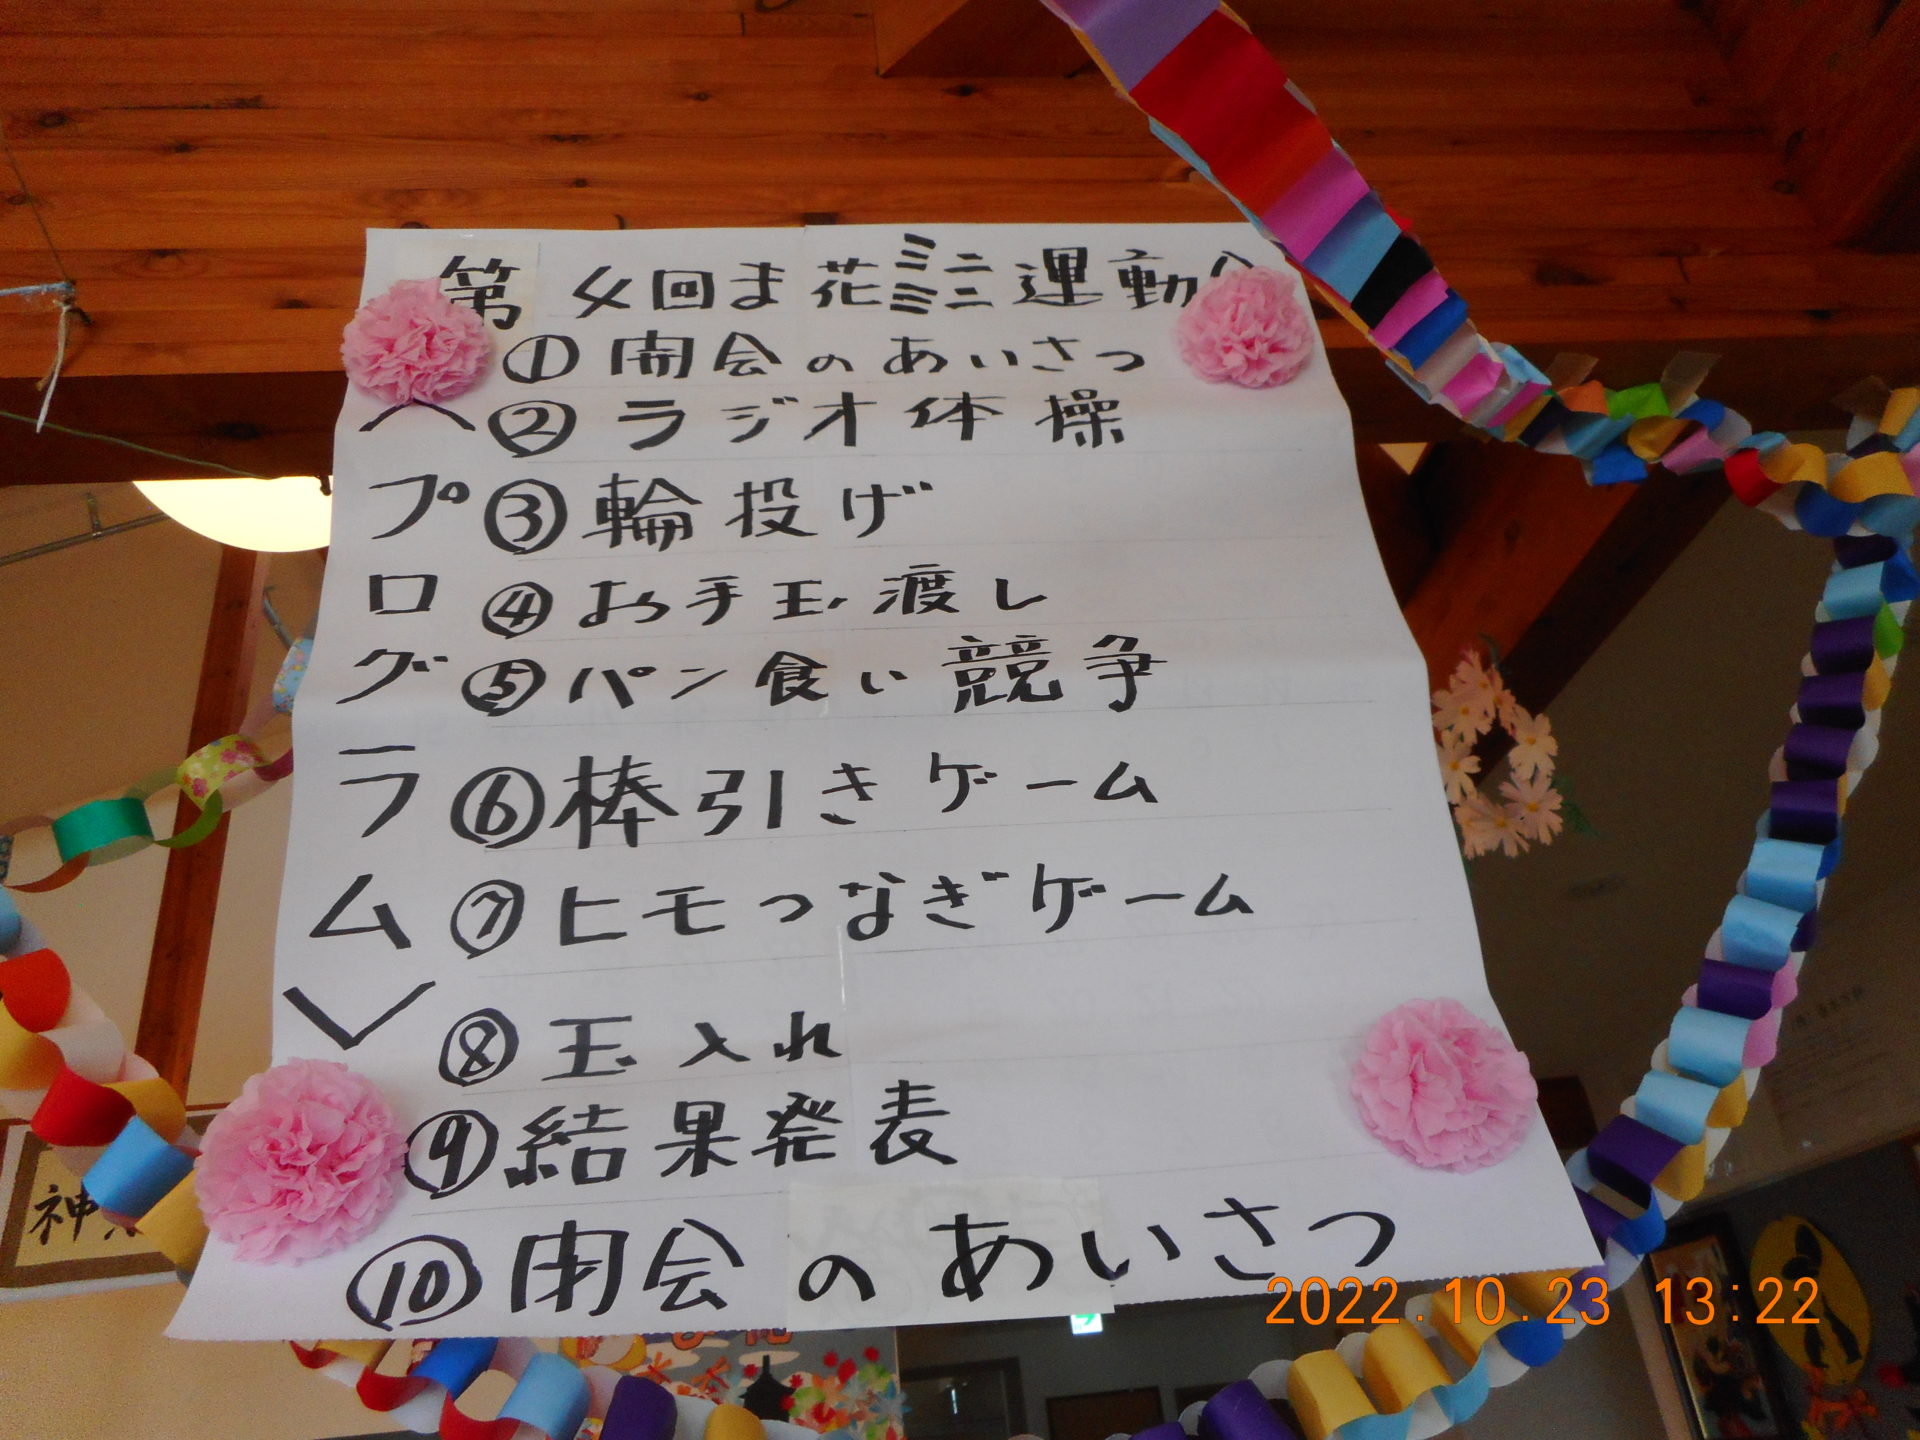 第4回ま花ミニミニ運動
①開会のあいさつ
②ラジオ体操
③輪投げ
④お手玉渡し
⑤パン食い競争
⑥棒引きゲーム
⑦ヒモつなぎゲーム
⑧玉入れ
⑨結果発表
⑩閉会のあいさつ
〈プログラム〉
神
2022.10.23 13:22